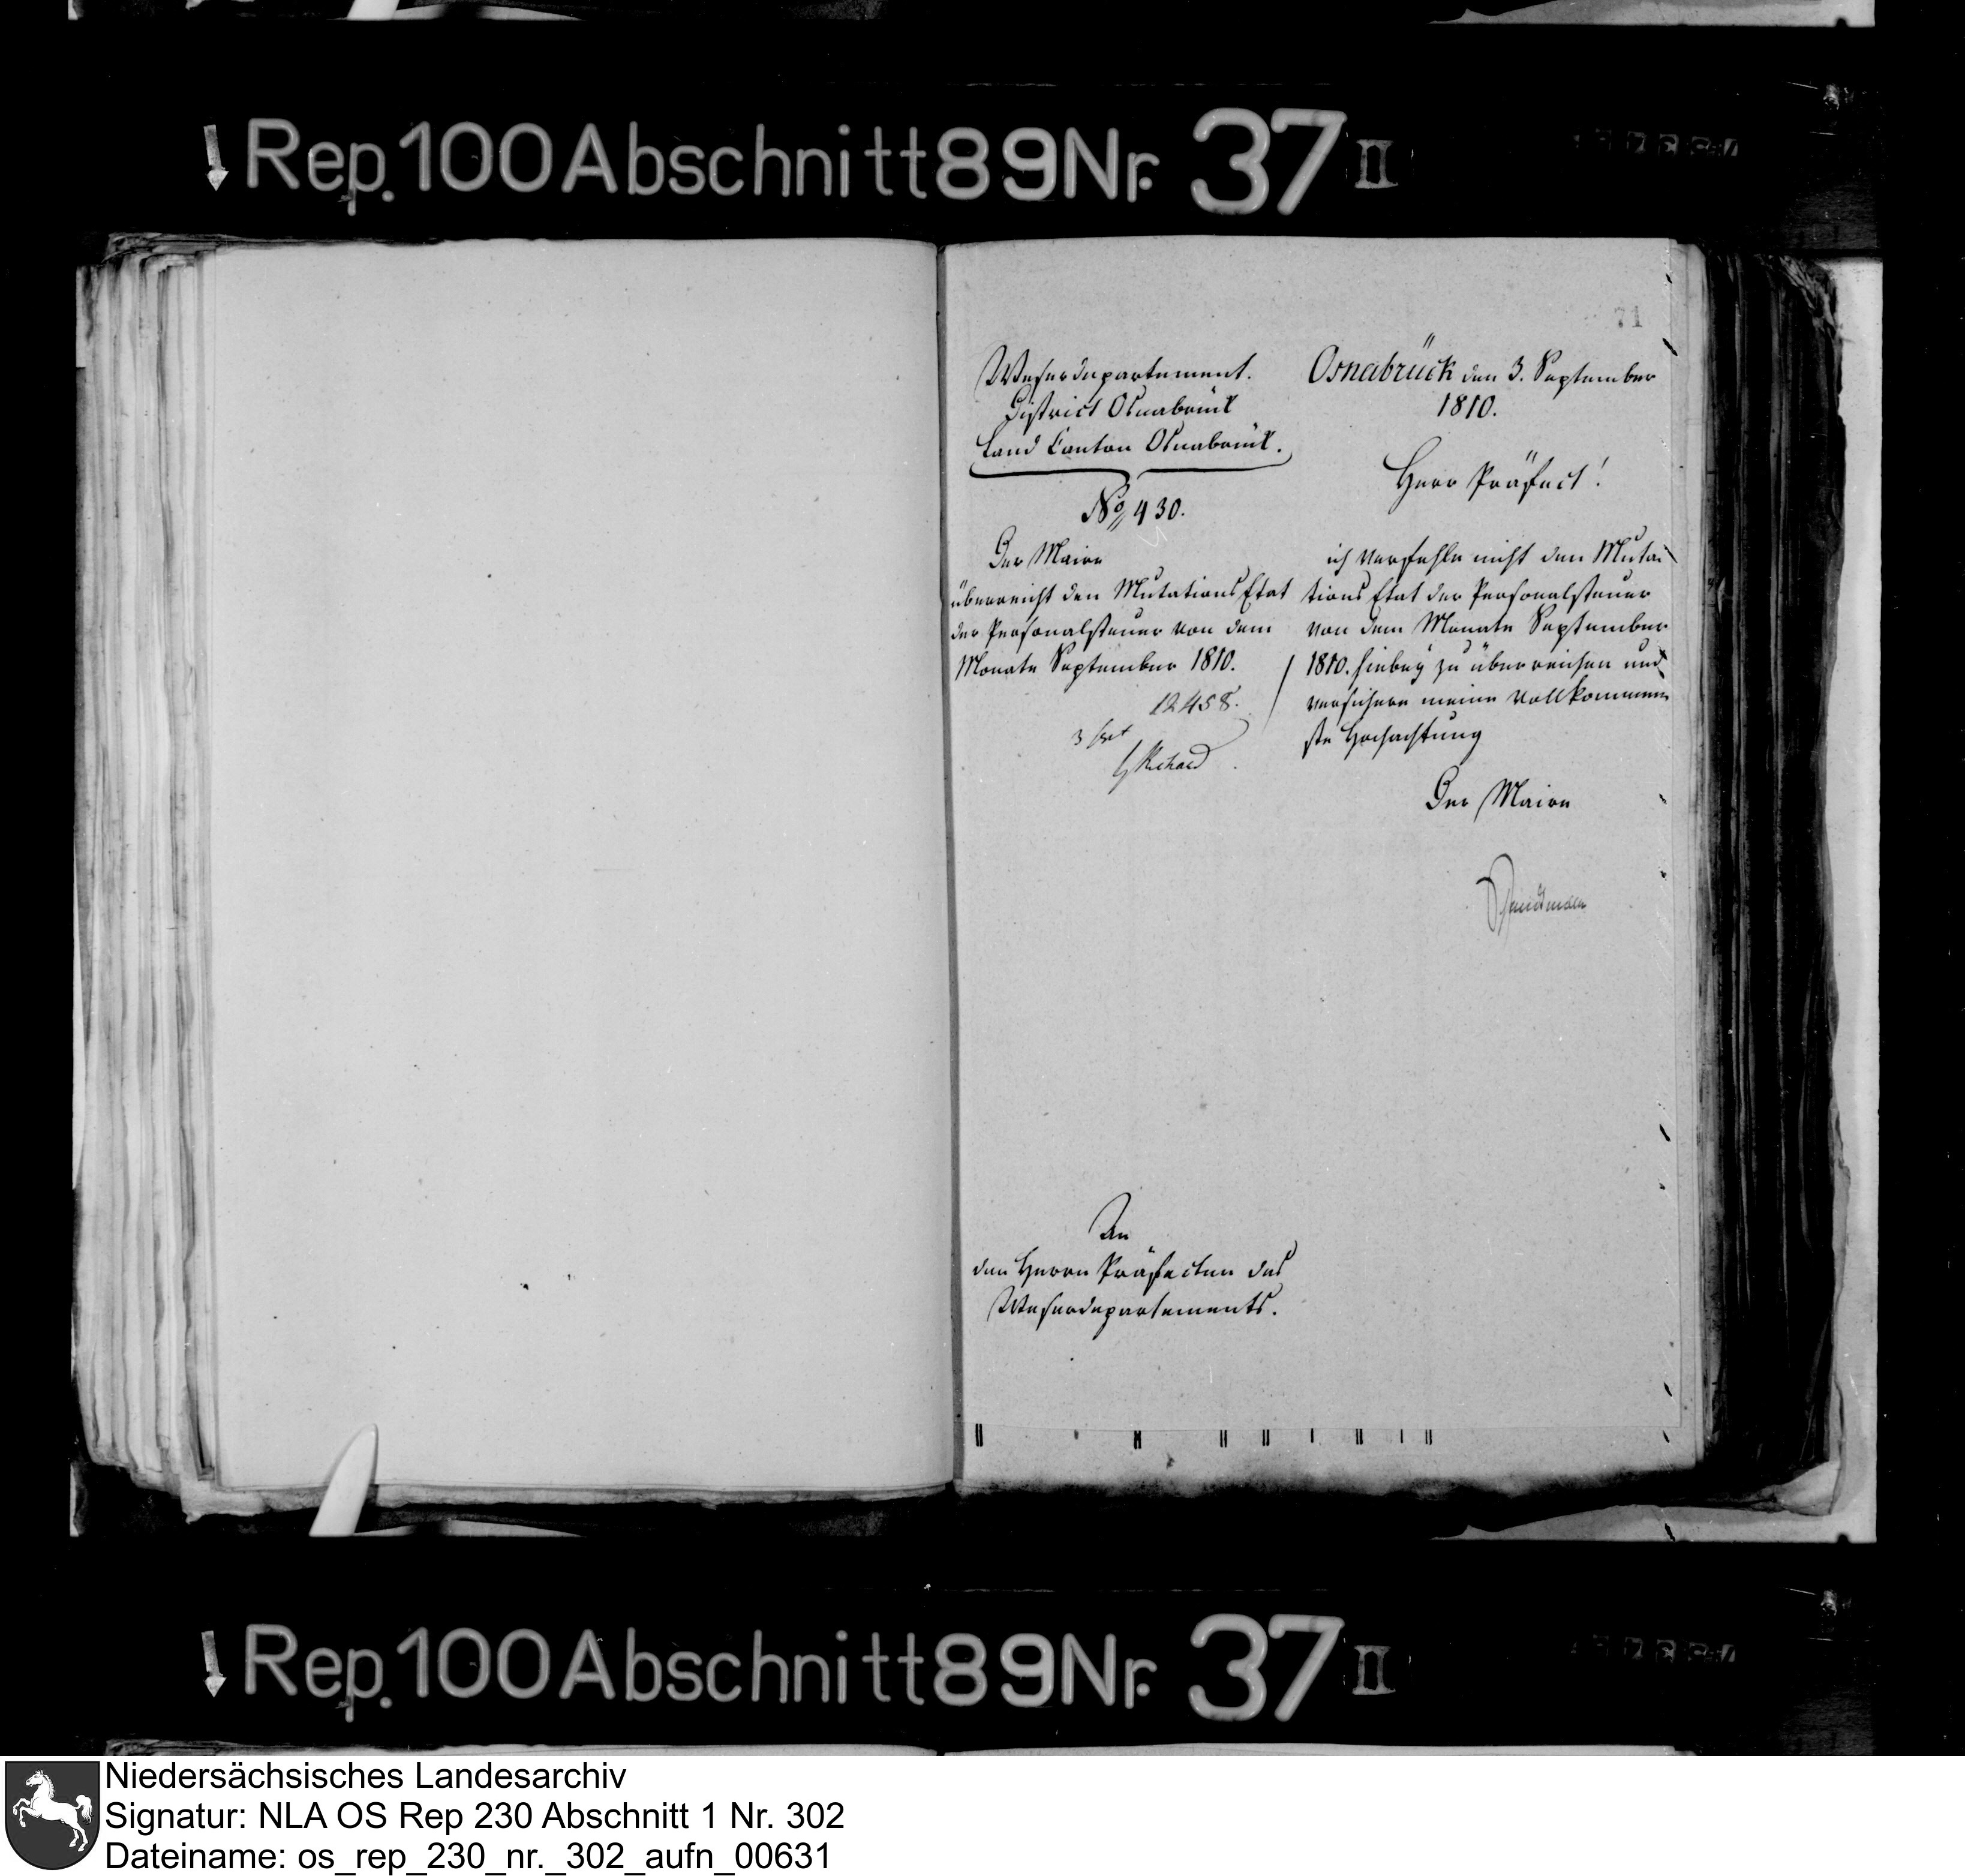 Rep. 100 Abschnitt 89 Nr. 37 II
71
Weserdepartement.
District Osnabrück
Land Canton Osnabrück.
No 430.
Der Maire
überreicht den Mutations Etat
der Personalsteuer von dem
Monate September 1810.
12458.
3 Sept
Richard
Osnabrück den 3. September
1810.
Herr Präfect!
ich verfehle nicht den Muta-
tions Etat der Personalsteuer
von dem Monate September
1810. hiebey zu überreichen und
versichere meine vollkommen
ste Hochachtung
Der Maire
An
den Herrn Präfecten des
Weserdepartements.
Rep. 100 Abschnitt 89 Nr. 37 II
Niedersächsisches Landesarchiv
Signatur: NLA OS Rep 230 Abschnitt 1 Nr. 302
Dateiname: os_rep_230_nr._302_aufn_00631